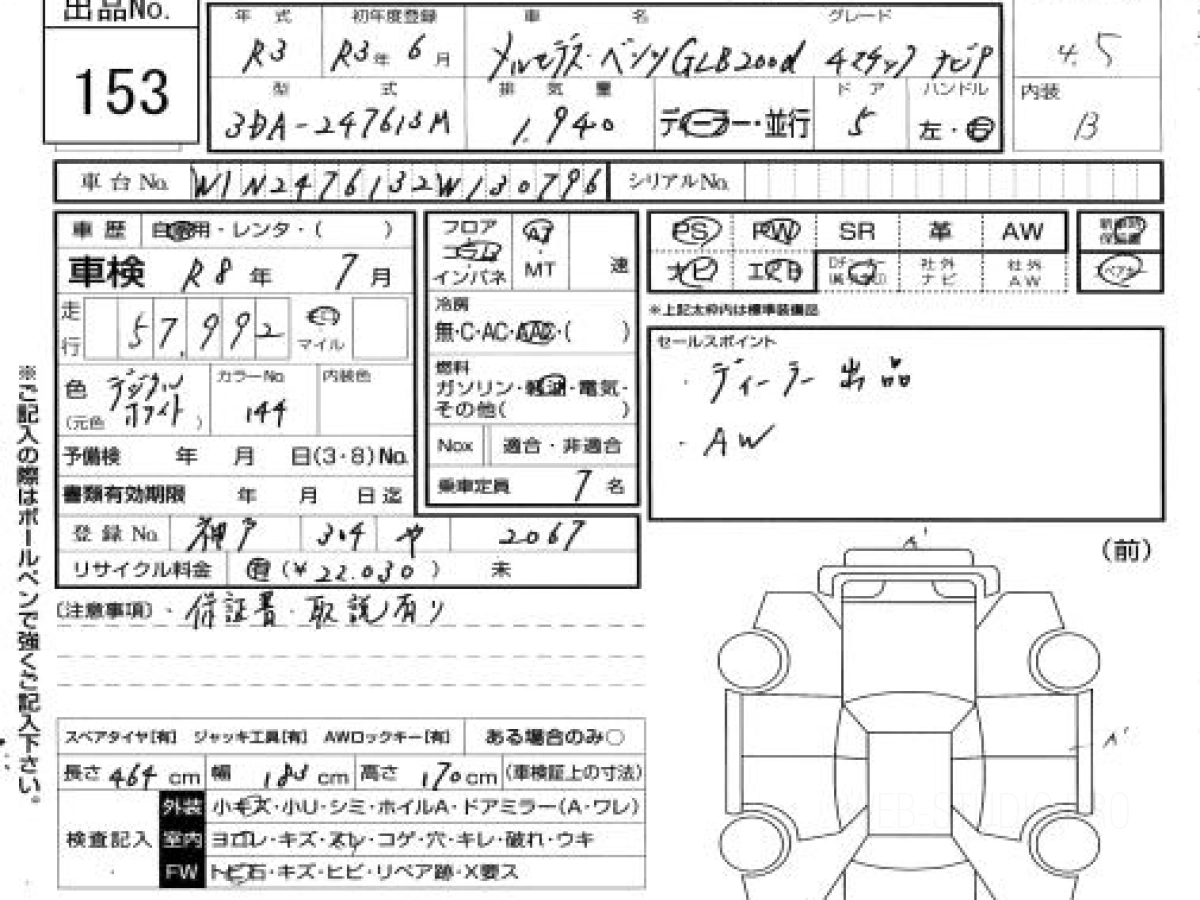 出品No.
153
年 式 初年度登録 車 名 グレード
R3 R3年 6月 メルセデス・ベンツ GLB200d 4マチック ナビP 4.5
型 式 排 気 量 ド ア ハンドル 内装
3DA-247613M 1.940 ディーラー・並行 5 左・右 B
車台No. W1N2476132W130796 シリアルNo.
車 歴 自家用・レンタ・( ) フロア AT PS PW SR 革 AW 新車時保証書
車検 R8年 7月 インパネ MT 速 ナビ エアB 社外ナビ 社外AW スペアキー
※上記太枠内は標準装備品
走行 57,992 マイル 冷房
無・C・AC・AAC・( )
セールスポイント
・ディーラー出品
・AW
色 デジタルホワイト (元色 ) カラーNo 144 内装色
燃料
ガソリン・軽油・電気・
その他( )
予備検 年 月 日(3・8)No. Nox 適合・非適合
書類有効期限 年 月 日迄 乗車定員 7名
登録No. 神戸 314 や 2067
リサイクル料金 有(¥22.030) 未
(前)
(注意事項)・保証書・取説有り
A'
A'
※ご記入の際はボールペンで強くご記入下さい。
スペアタイヤ[有] ジャッキ工具[有] AWロックキー[有] ある場合のみ○
長さ 464cm 幅 183cm 高さ 170cm (車検証上の寸法)
検査記入
外装 小キズ・小U・シミ・ホイルA・ドアミラー(A・ワレ)
室内 ヨゴレ・キズ・スレ・コゲ・穴・キレ・破れ・ウキ
FW トビ石・キズ・ヒビ・リペア跡・X要ス